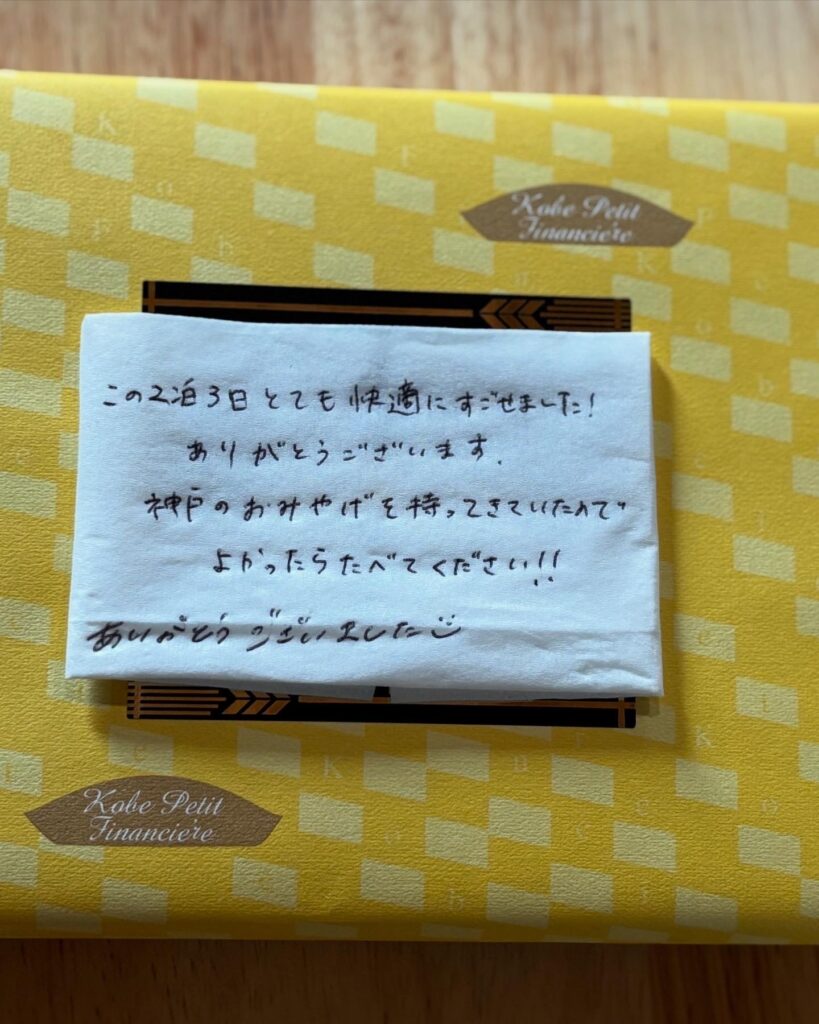 Kobe Petit
Financière
この2泊3日とても快適にすごせました!
ありがとうございます.
神戸のおみやげを持ってきていたので
よかったらたべてください!!
ありがとうございました
Kobe Petit
Financière